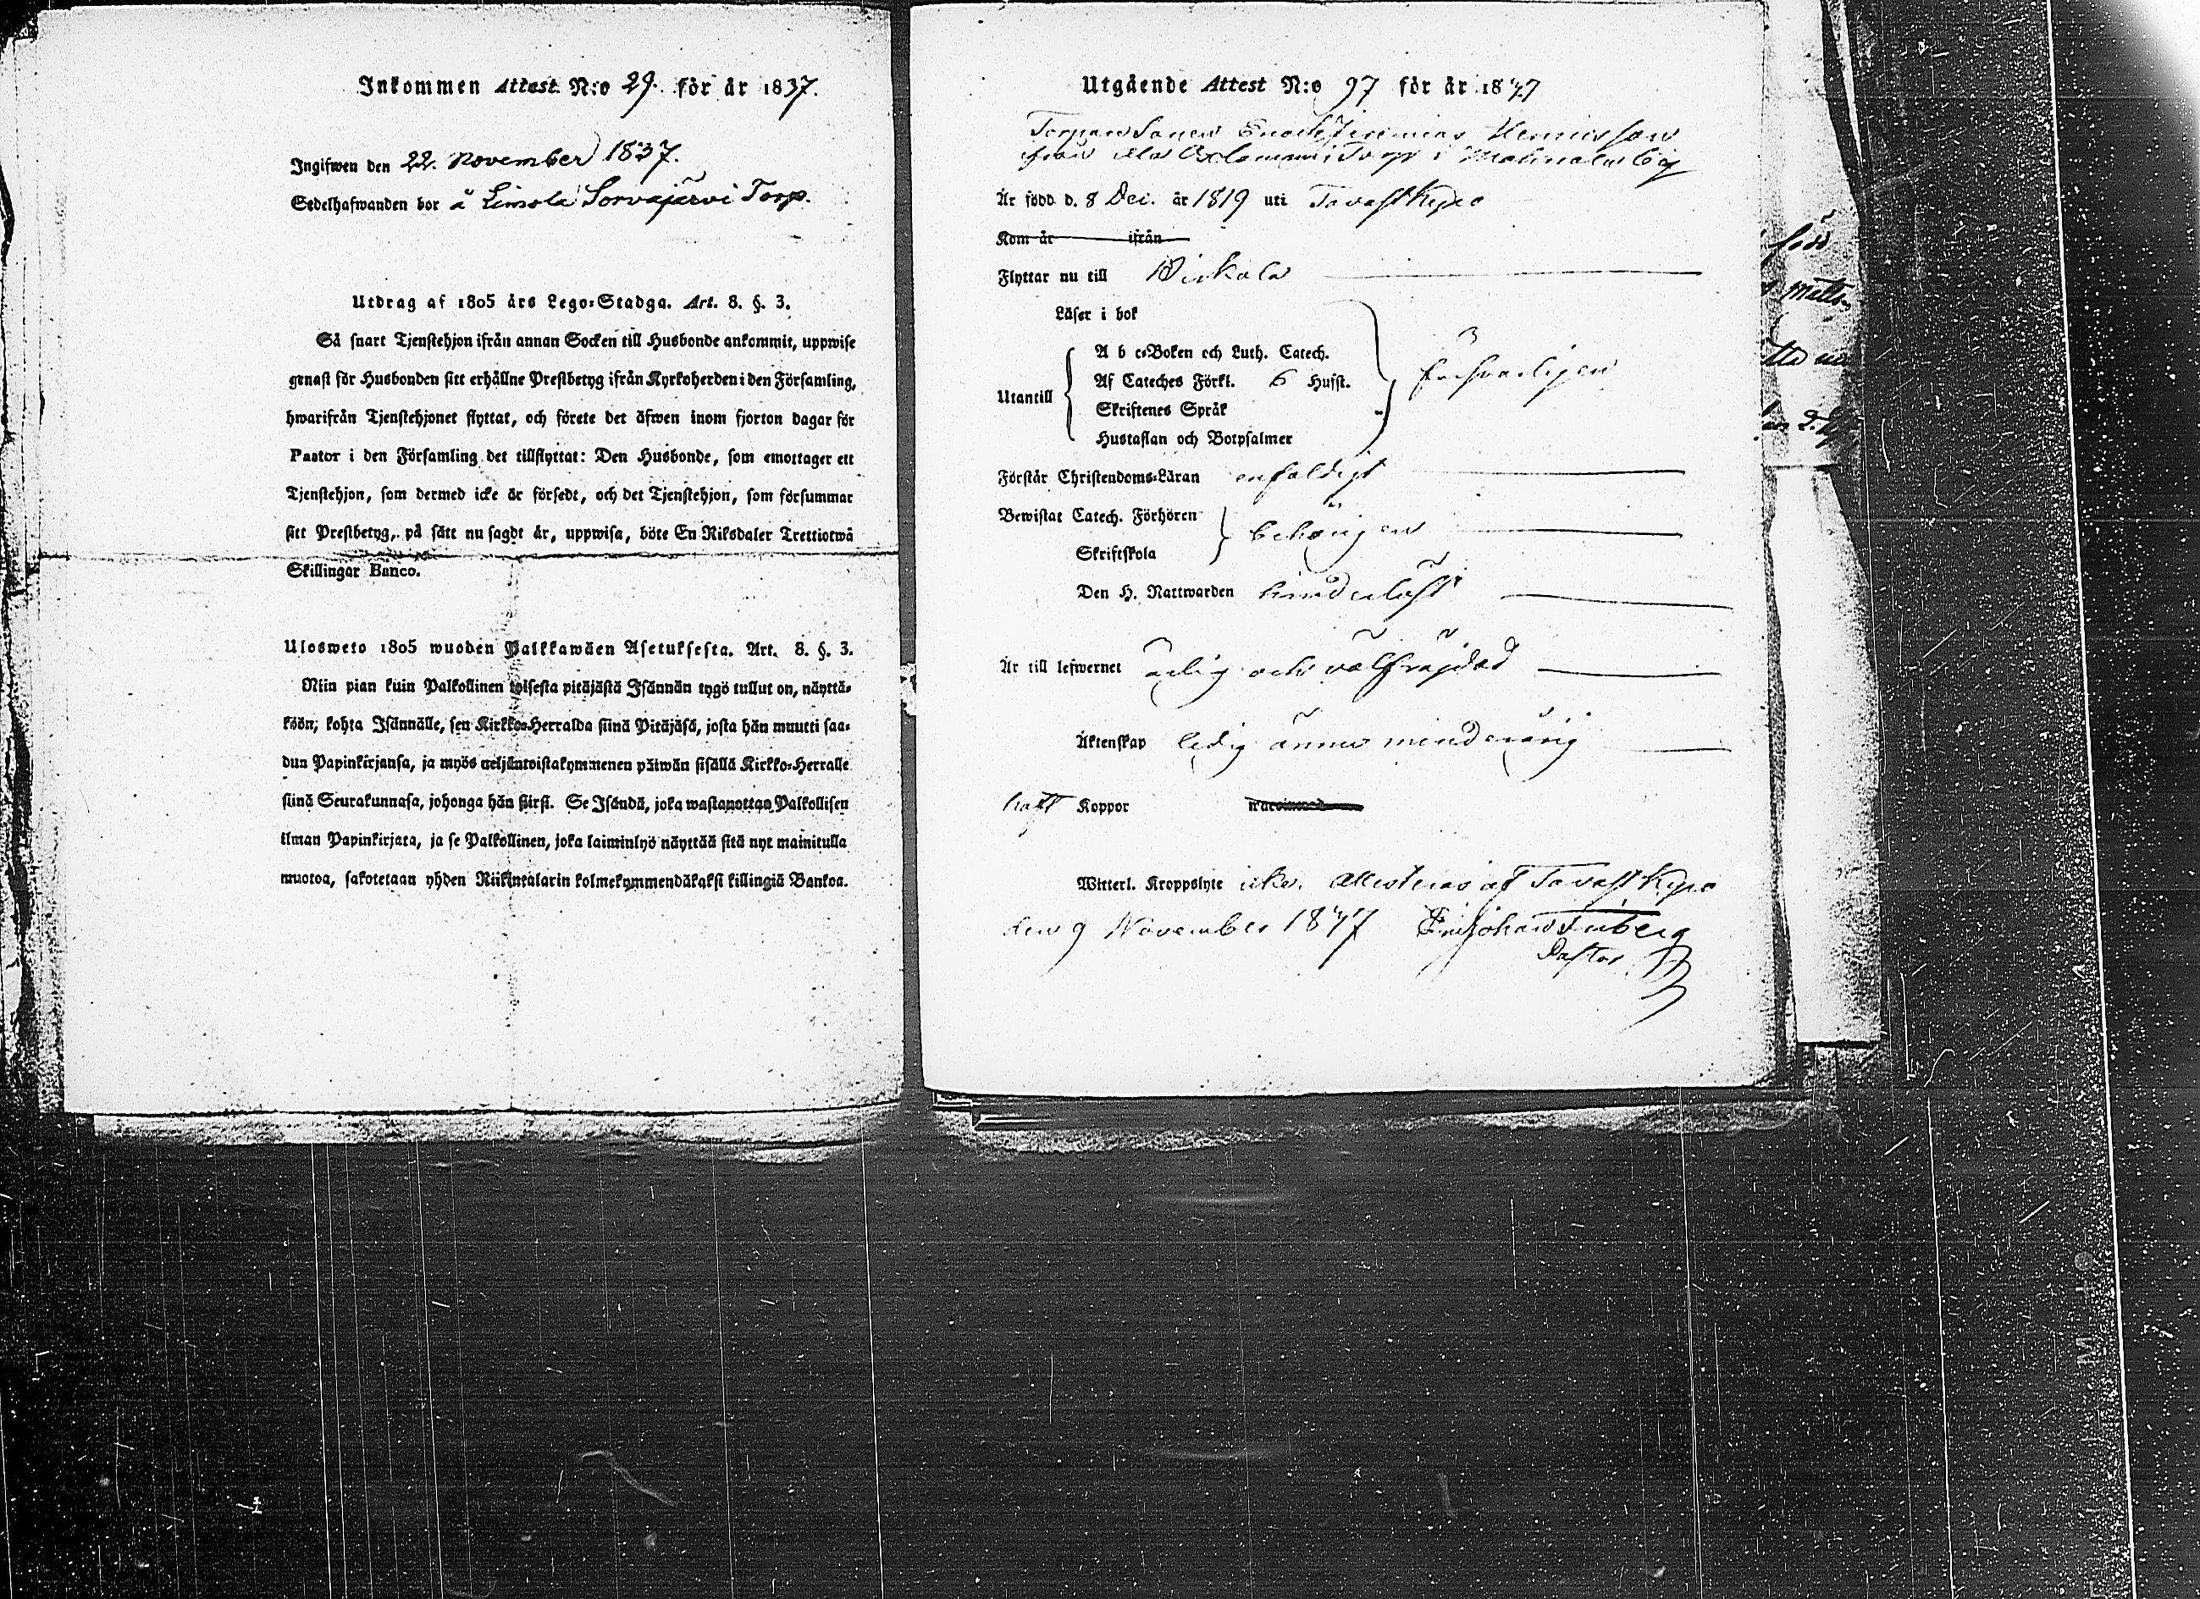 Inkommen Attest N:o 29. för år 1837.
Ingifwen den 22. November 1837.
Sedelhafwanden bor å Limola Sorvajärvi Torp.
Utdrag af 1805 års Lego-Stadga. Art. 8. §. 3.
Så snart Tjenstehjon ifrån annan Socken till Husbonde ankommit, uppwise
genast för Husbonden sitt erhållne Prestbetyg ifrån Kyrkoherden i den Församling,
hwarifrån Tjenstehjonet flyttat, och förete det äfwen inom fjorton dagar för
Pastor i den Församling det tillflyttat: Den Husbonde, som emottager ett
Tjenstehjon, som dermed icke är försedt, och det Tjenstehjon, som försummar
sitt Prestbetyg, på sätt nu sagdt är, uppwisa, böte En Riksdaler Trettiotwå
Skillingar Banco.
Ulosweto 1805 wuoden Palkkawäen Asetuksesta. Art. 8. §. 3.
Niin pian kuin Palkollinen toisesta pitäjästä Isännän tygö tullut on, näyttä-
köön; kohta Isännälle, sen Kirkko-Herralda siinä Pitäjäsä, josta hän muutti saa-
dun Papinkirjansa, ja myös neljäntoistakymmenen päiwän sisällä Kirkko-Herralle
siinä Seurakunnasa, johonga hän siirsi. Se Isändä, joka wastanottaa Palkollisen
ilman Papinkirjata, ja se Palkollinen, joka laiminlyö näyttää sitä nyt mainitulla
muotoa, sakotetaan yhden Riikintalarin kolmekymmendäkaksi killingiä Bankoa.
Utgående Attest N:o 97 för år 1837
Torpare Sonen Enoch Jeremias Henricsson
från Torp i
Är född d. 8 Dec. år 1819 uti TavastKyro
Kom år ifrån
Flyttar nu till
Läser i bok
A b c-Boken och Luth. Catech.
Af Cateches Förkl. 6 Husst.
försvarligen
Utantill
Skriftenes Språk
Hustaflan och Botpsalmer
Förstår Christendoms-Läran enfaldigt
Bewistat Catech. Förhören
behörigen
Skriftskola
Den H. Nattwarden hinderlöst
Är till lefwernet ärlig och välfräjdad
Äktenskap ledig ännu minderårig
haft Koppor
Witterl. Kroppslyte icke. Attesteras af TavastKyro
den 9 November 1837 Johan
Pastor
född